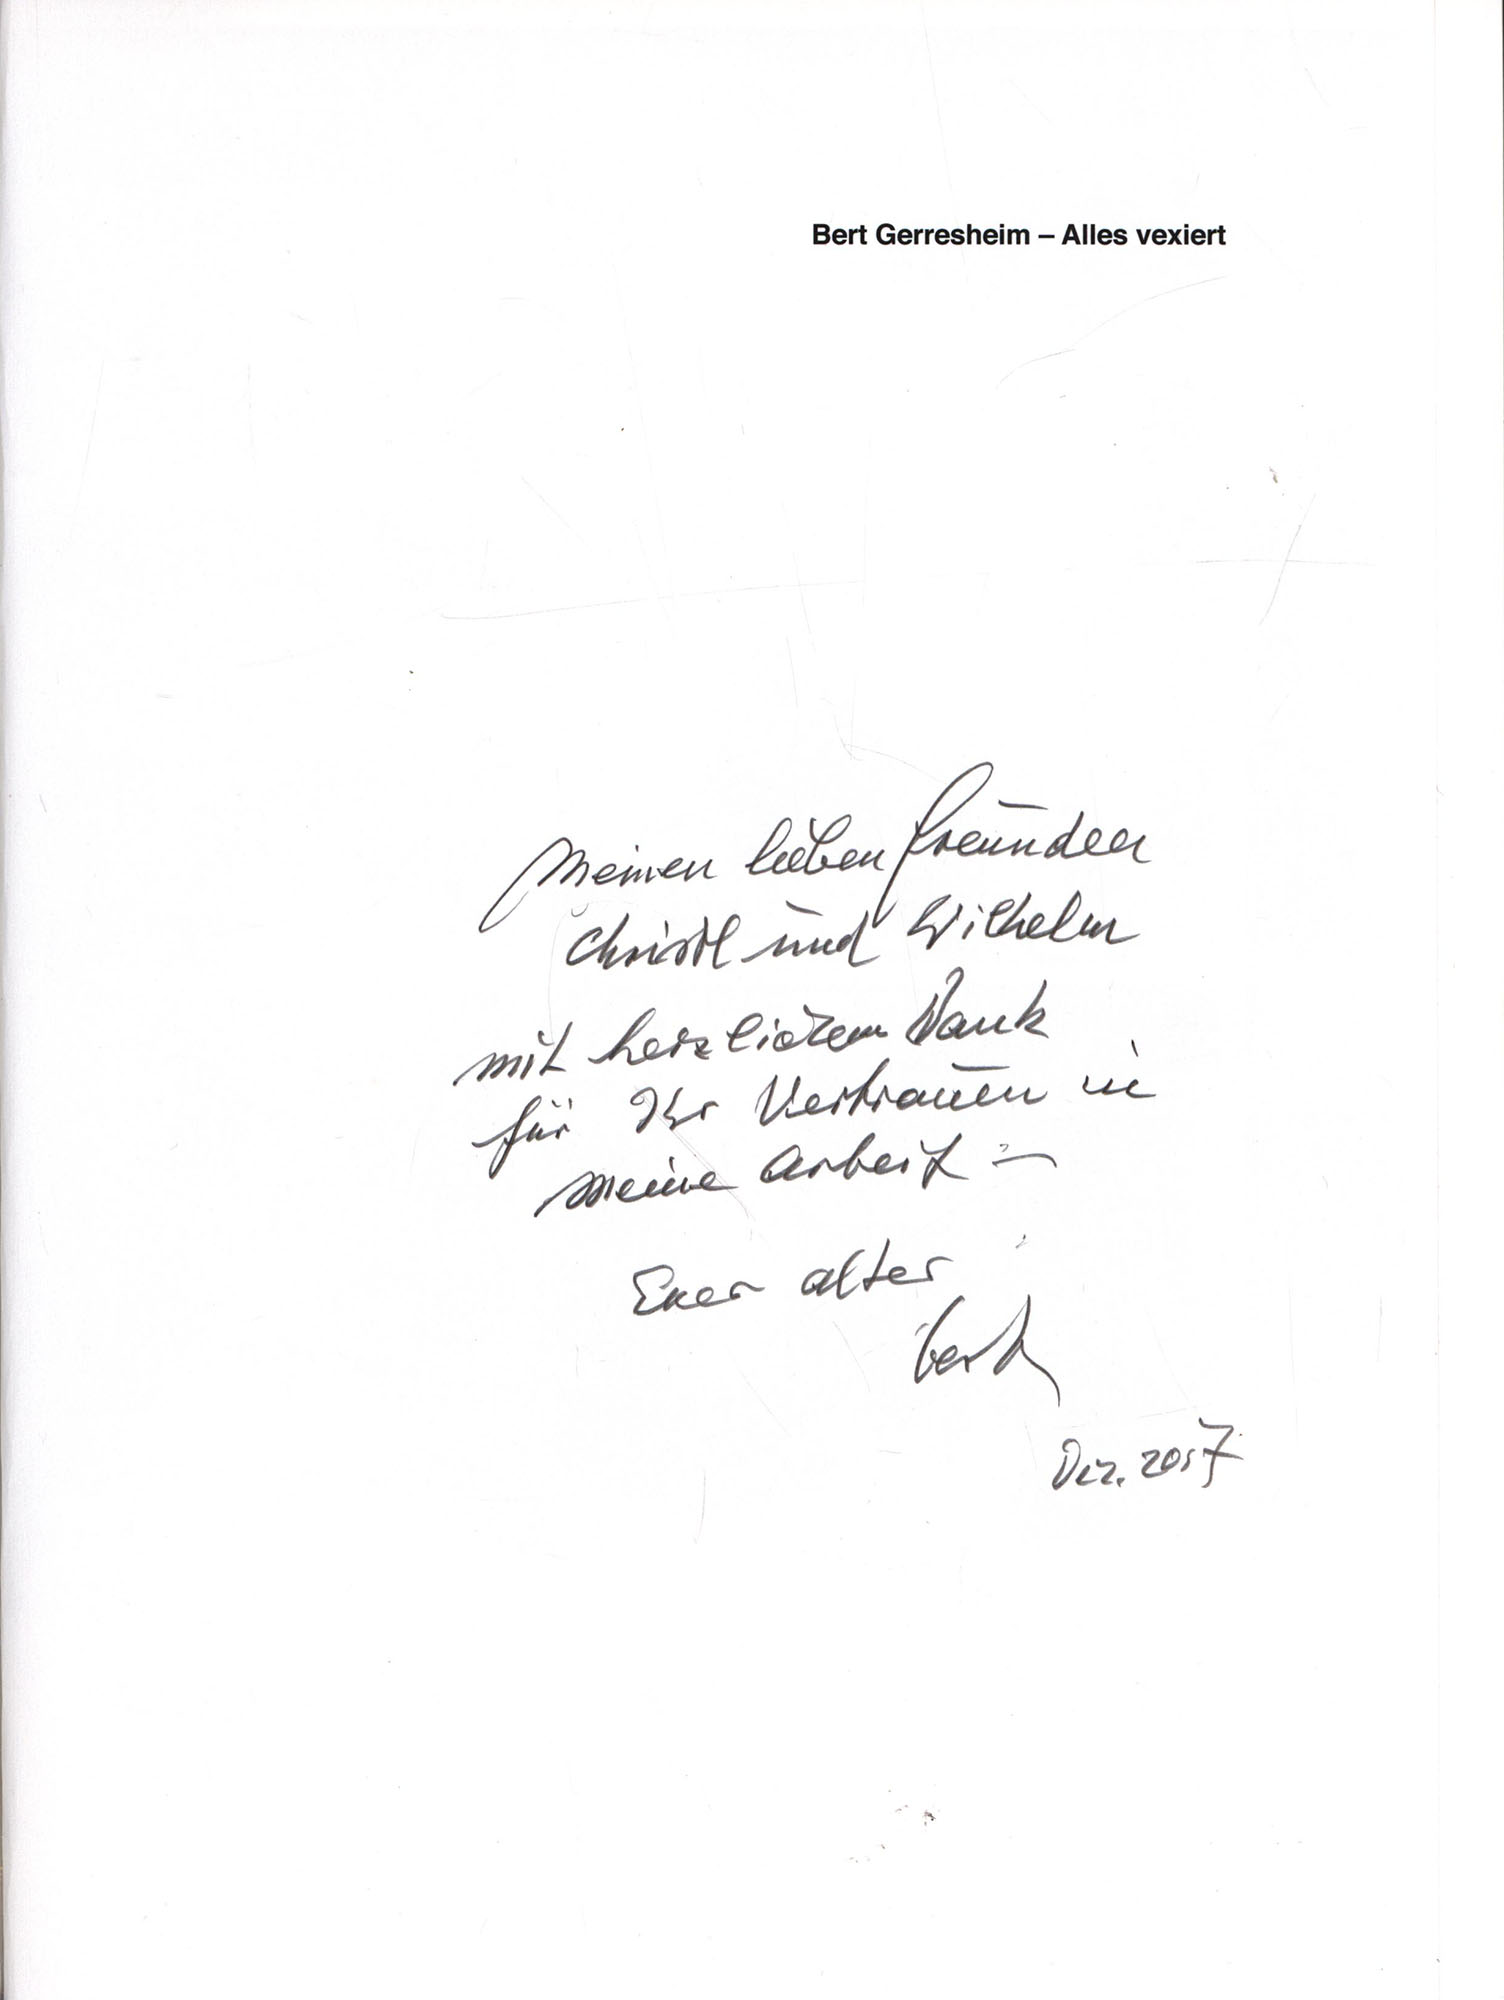 Bert Gerresheim – Alles vexiert
Meinen lieben Freunden
Christl und Wilhelm
mit herzlichem Dank
für Ihr Vertrauen in
meine Arbeit –
Euer alter
bert
Dez. 2017